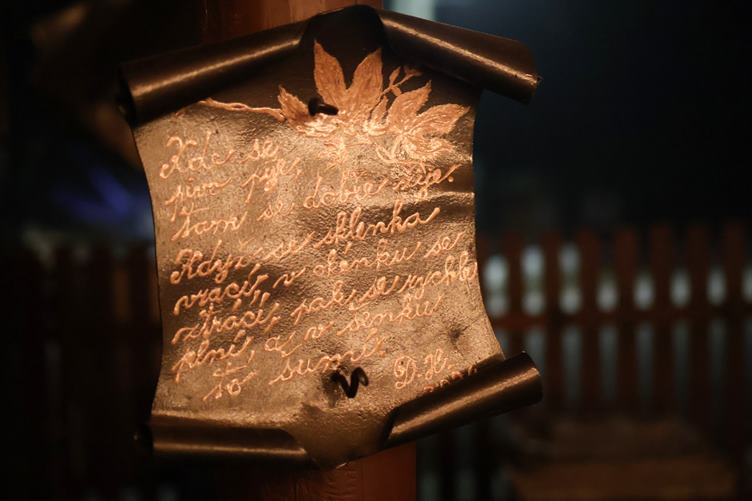 Kde se
pivo pije,
tam se dobře žije.
Když se sklenka
vrací, v okénku se
ztrácí, pak se rychle
plní, a v senku
to šumní.
D.H.